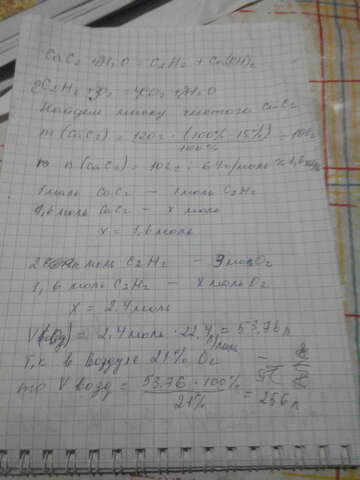 CaC2 + 2H2O = C2H2 + Ca(OH)2
2C2H2 + 5O2 = 4CO2 + 2H2O
Найдем массу чистого CaC2
m(CaC2) = 120г · (100% - 15%) / 100% = 102г
n(CaC2) = 102г : 64г/моль ≈ 1,6 моль
1 моль CaC2 — 1 моль C2H2
1,6 моль CaC2 — x моль
x = 1,6 моль
2 моль C2H2 — моль O2
1,6 моль C2H2 — x моль O2
x = 2,4 моль
V(O2) = 2,4 моль · 22,4 л/моль = 53,76 л
Т.к в воздухе 21% O2 —
то V возд = 53,76 · 100% / 21% = 256 л